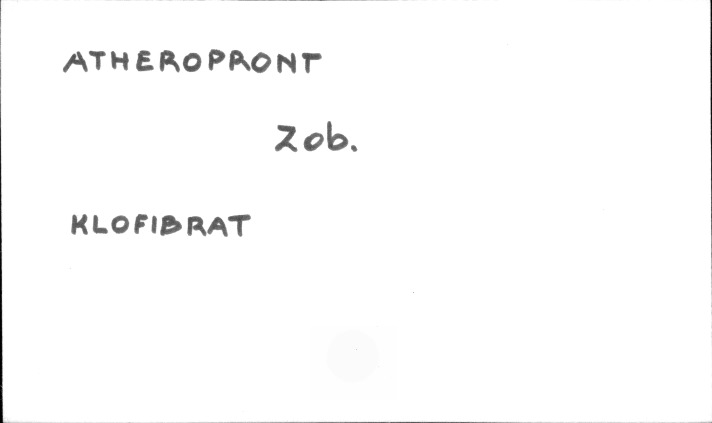 ATHEROPRONT
Zob.
KLOFIBRAT